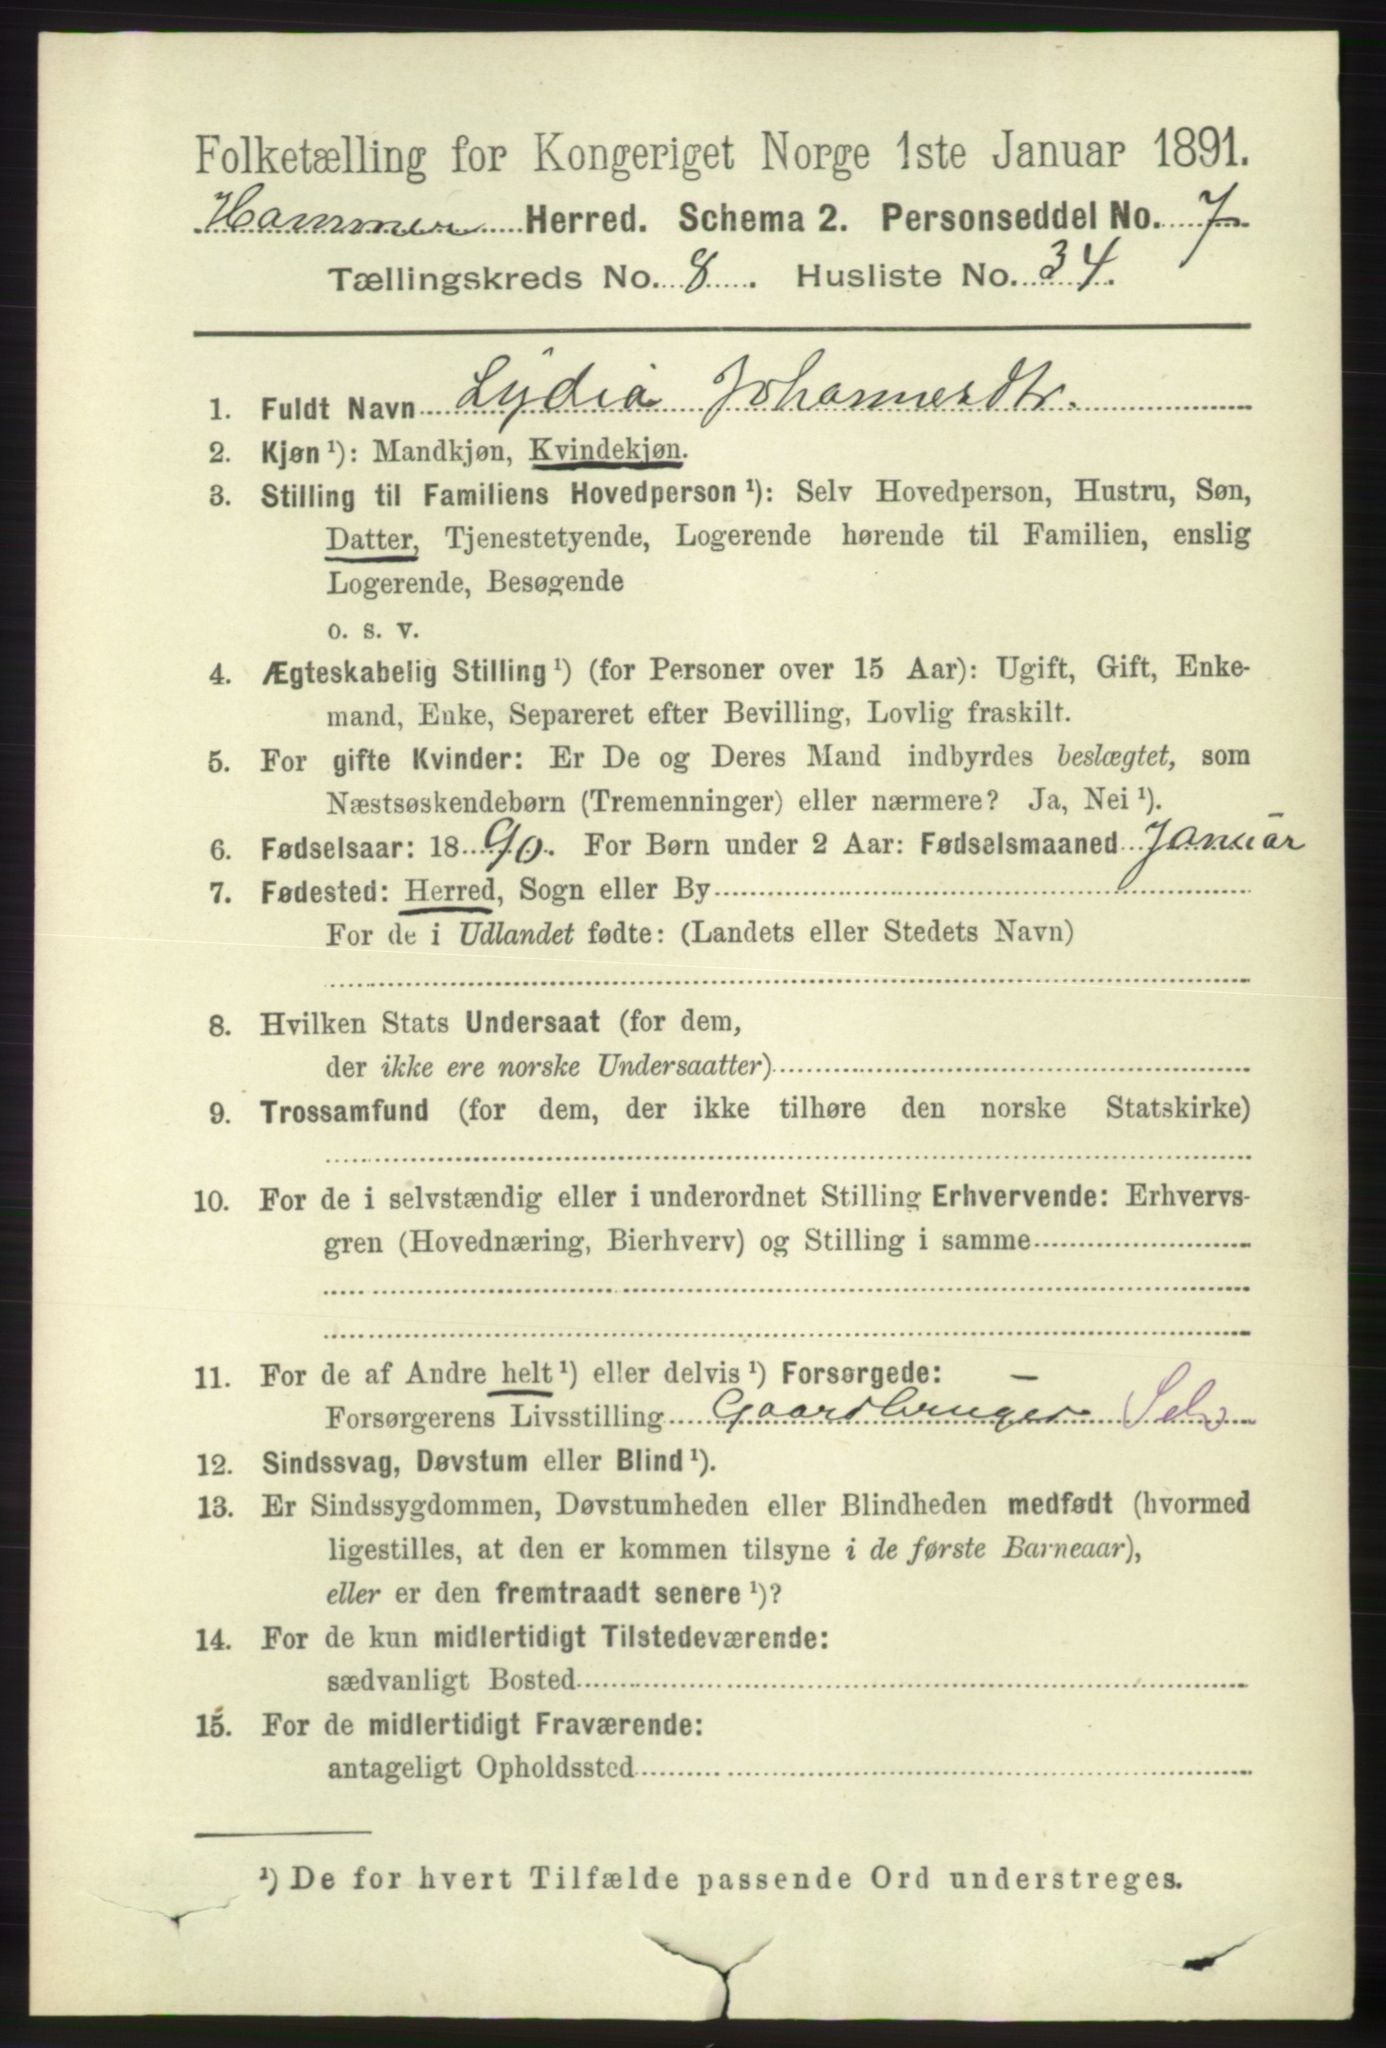 Folketælling for Kongeriget Norge 1ste Januar 1891.
Hammer Herred. Schema 2. Personseddel No. 7
Tællingskreds No. 8. Husliste No. 34.
1. Fuldt Navn Lydia Johannesdtr.
2. Kjøn ¹): Mandkjøn, Kvindekjøn.
3. Stilling til Familiens Hovedperson ¹): Selv Hovedperson, Hustru, Søn,
Datter, Tjenestetyende, Logerende hørende til Familien, enslig
Logerende, Besøgende
o. s. v.
4. Ægteskabelig Stilling ¹) (for Personer over 15 Aar): Ugift, Gift, Enke-
mand, Enke, Separeret efter Bevilling, Lovlig fraskilt.
5. For gifte Kvinder: Er De og Deres Mand indbyrdes beslægtet, som
Næstsøskendebørn (Tremenninger) eller nærmere? Ja, Nei ¹).
6. Fødselsaar: 1890. For Børn under 2 Aar: Fødselsmaaned Januar
7. Fødested: Herred, Sogn eller By
For de i Udlandet fødte: (Landets eller Stedets Navn)
8. Hvilken Stats Undersaat (for dem,
der ikke ere norske Undersaatter)
9. Trossamfund (for dem, der ikke tilhøre den norske Statskirke)
10. For de i selvstændig eller i underordnet Stilling Erhvervende: Erhvervs-
gren (Hovednæring, Bierhverv) og Stilling i samme
11. For de af Andre helt ¹) eller delvis ¹) Forsørgede: –
Forsørgerens Livsstilling Gaardbruger Selv
12. Sindssvag, Døvstum eller Blind ¹).
13. Er Sindssygdommen, Døvstumheden eller Blindheden medfødt (hvormed
ligestilles, at den er kommen tilsyne i de første Barneaar),
eller er den fremtraadt senere ¹)?
14. For de kun midlertidigt Tilstedeværende:
sædvanligt Bosted
15. For de midlertidigt Fraværende:
antageligt Opholdssted
¹) De for hvert Tilfælde passende Ord understreges.